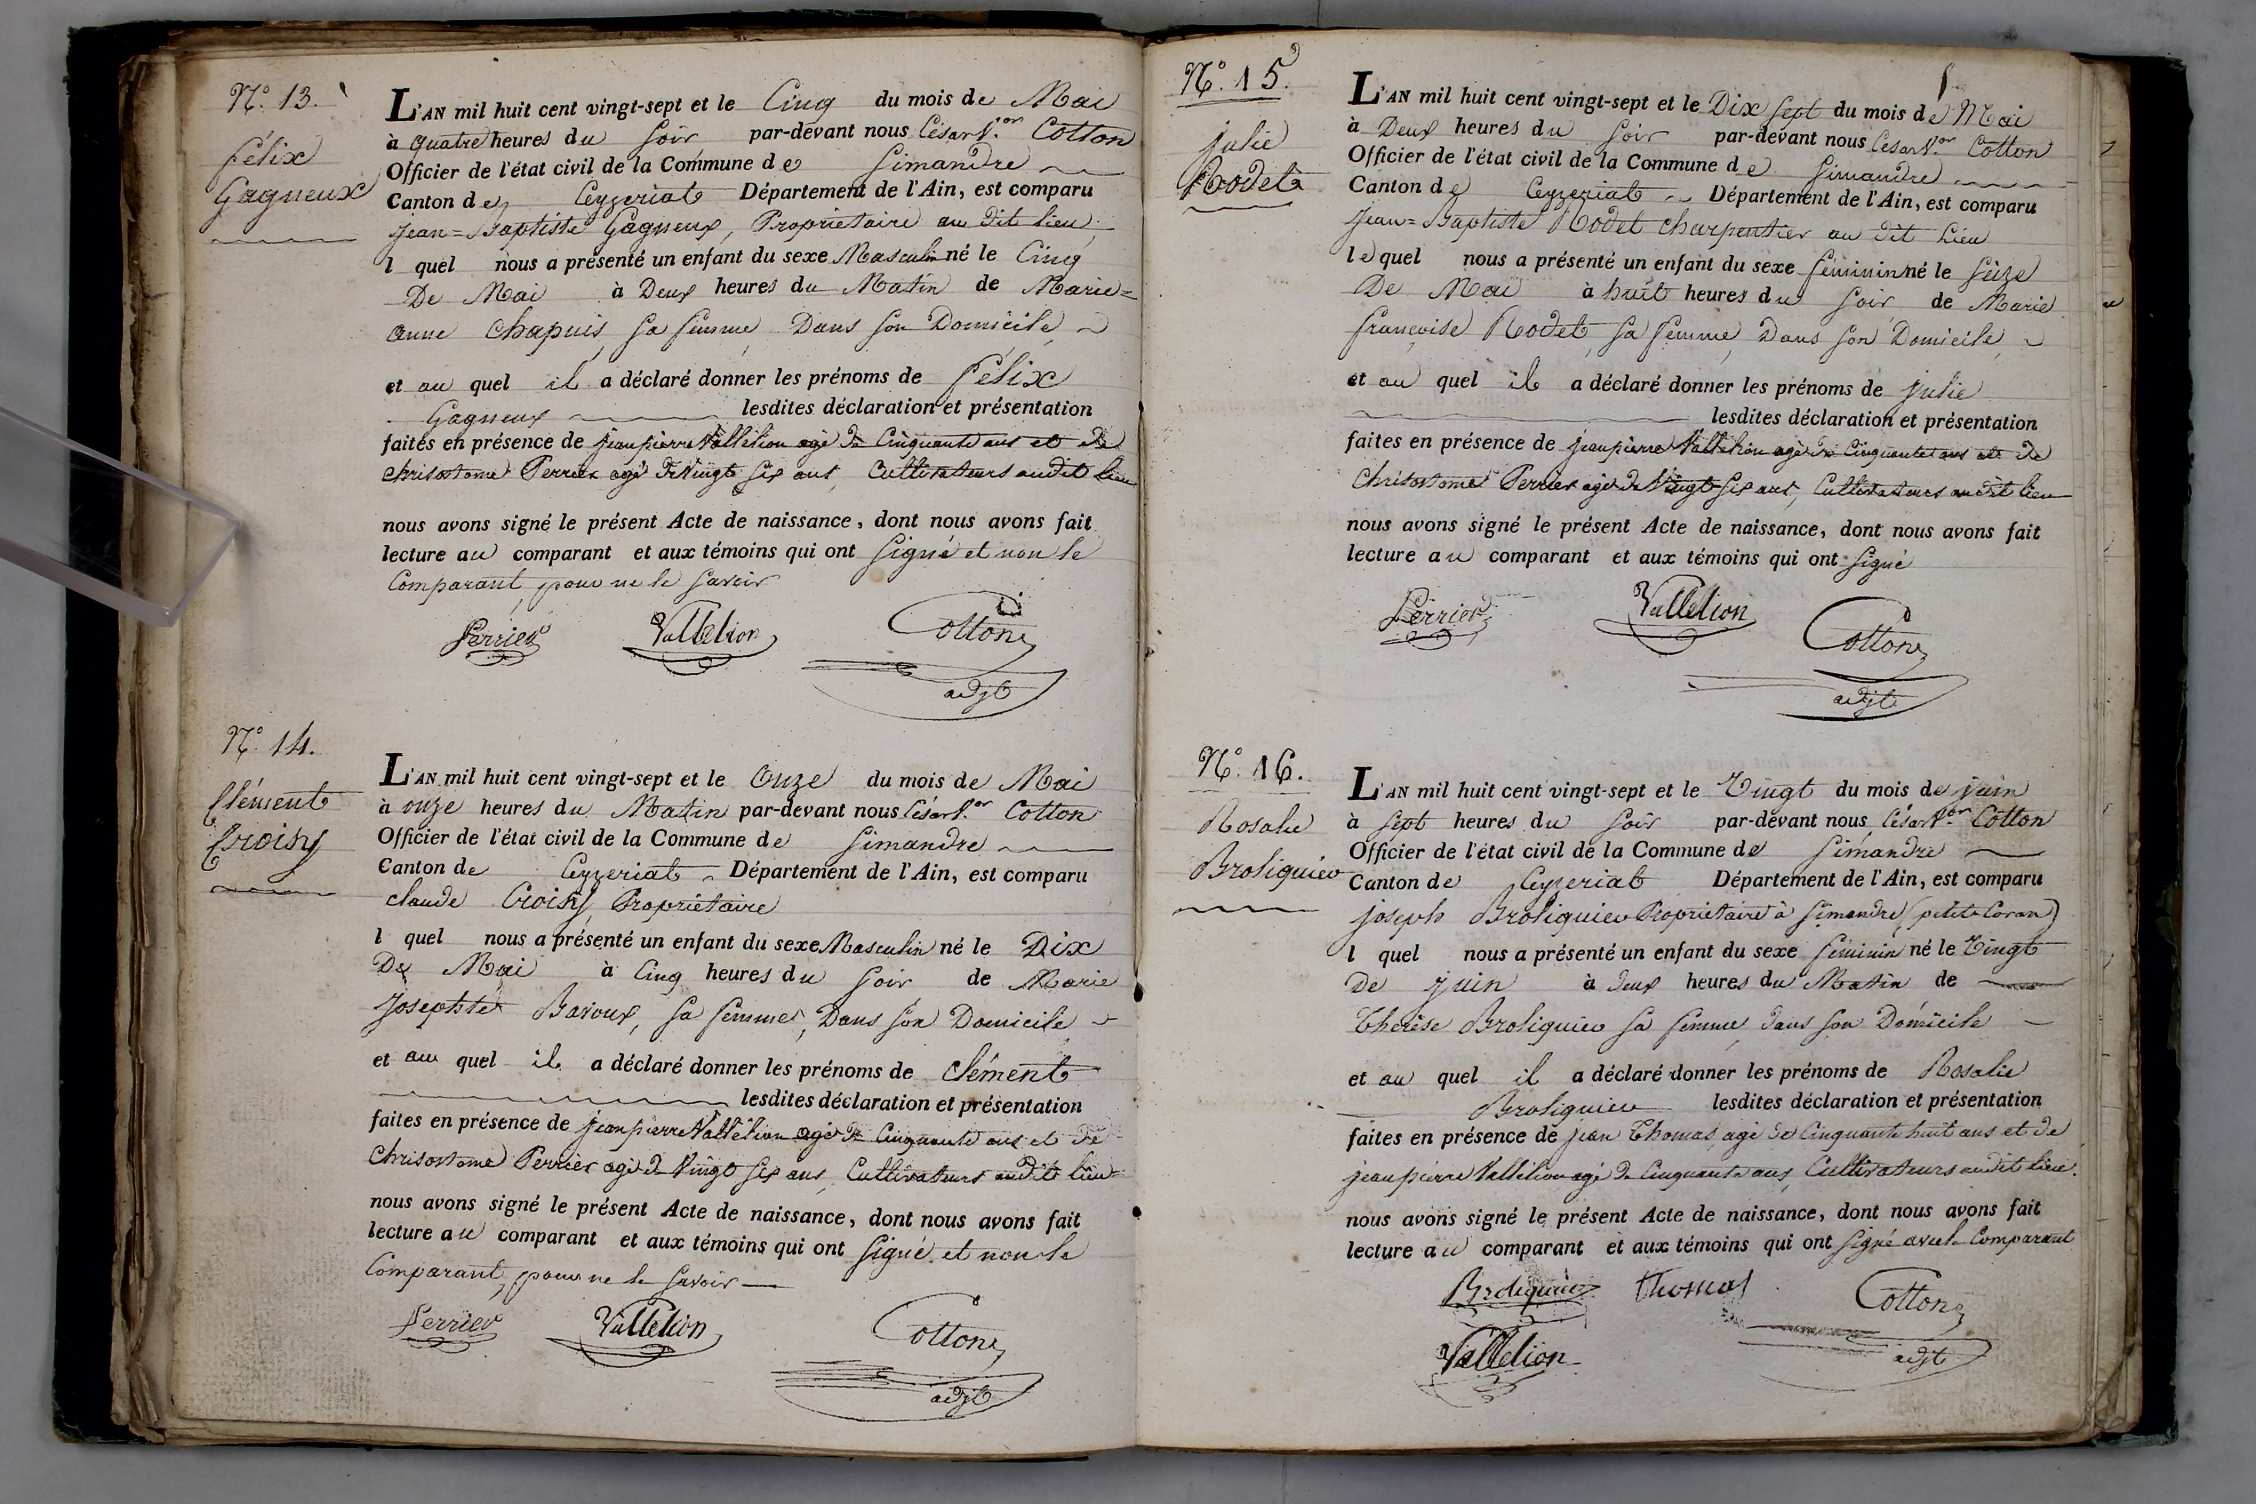 N.° 13.
félix
Gagneux
L'AN mil huit cent vingt-sept et le Cinq du mois de Mai
à quatre heures du soir par-devant nous César V.or Cotton
Officier de l'état civil de la Commune de Simandre
Canton de Ceyzeriat Département de l'Ain, est comparu
jean=Baptiste Gagneux, Proprietaire au dit lieu
l quel nous a présenté un enfant du sexe Masculin né le Cinq
De Mai à Deux heures du Matin de Marie=
anne Chapuis sa femme, Dans son Domicile,
et au quel il a déclaré donner les prénoms de félix
Gagneux lesdites déclaration et présentation
faites en présence de jean pierre Vallélion agé de Cinquante ans et de
Chrisostome Perrier agé de Vingt six ans, Cultivateurs audit lieu
nous avons signé le présent Acte de naissance, dont nous avons fait
lecture au comparant et aux témoins qui ont signé et non le
Comparant, pour ne le savoir
Perrier Vallelion Cotton
adjt
N.° 14.
Clément
Croisy
L'AN mil huit cent vingt-sept et le Onze du mois de Mai
à onze heures du Matin par-devant nous César V.or Cotton
Officier de l'état civil de la Commune de Simandre
Canton de Ceyzeriat Département de l'Ain, est comparu
claude Croisy, Propriétaire
l quel nous a présenté un enfant du sexe Masculin né le Dix
De Mai à Cinq heures du soir de Marie
Josephte Baroux, sa femme, Dans son Domicile
et au quel il a déclaré donner les prénoms de Clément
lesdites déclaration et présentation
faites en présence de jean pierre Vallélion agé de Cinquante ans et de
Chrisostome Perrier agé de Vingt six ans, Cultivateurs audit lieu
nous avons signé le présent Acte de naissance, dont nous avons fait
lecture au comparant et aux témoins qui ont signé et non le
Comparant, pour ne le savoir
Perrier Vallelion Cotton
adjt
N.° 15.
julie
Rodet
L'AN mil huit cent vingt-sept et le Dix sept du mois de Mai
à Deux heures du soir par-devant nous César V.or Cotton
Officier de l'état civil de la Commune de Simandre
Canton de Ceyzeriat Département de l'Ain, est comparu
jean=Baptiste Rodet charpentier au dit Lieu
lequel nous a présenté un enfant du sexe féminin né le seize
De Mai à huit heures du soir de Marie
françoise Rodet, sa femme, Dans son Domicile,
et au quel il a déclaré donner les prénoms de julie
lesdites déclaration et présentation
faites en présence de jean pierre Vallélion agé de Cinquante ans et de
Chrisostome Perrier agé de Vingt six ans, Cultivateurs audit lieu
nous avons signé le présent Acte de naissance, dont nous avons fait
lecture au comparant et aux témoins qui ont signé
Perrier Vallelion Cotton
adjt
N.° 16.
Rosalie
Broliquier
L'AN mil huit cent vingt-sept et le Vingt du mois de juin
à sept heures du soir par-devant nous César V.or Cotton
Officier de l'état civil de la Commune de Simandre
Canton de Ceyzeriat Département de l'Ain, est comparu
joseph Broliquier Proprietaire à Simandre (petit Coran)
l quel nous a présenté un enfant du sexe féminin né le Vingt
De juin à deux heures du Matin de
Thérèse Broliquier sa femme, dans son Domicile
et au quel il a déclaré donner les prénoms de Rosalie
Broliquier lesdites déclaration et présentation
faites en présence de jean Thomas, agé de Cinquante huit ans et de
jean pierre Vallélion agé de Cinquante ans, Cultivateurs audit lieu.
nous avons signé le présent Acte de naissance, dont nous avons fait
lecture au comparant et aux témoins qui ont signé avec le Comparant
Broliquier Thomas Cotton
Vallelion adjt